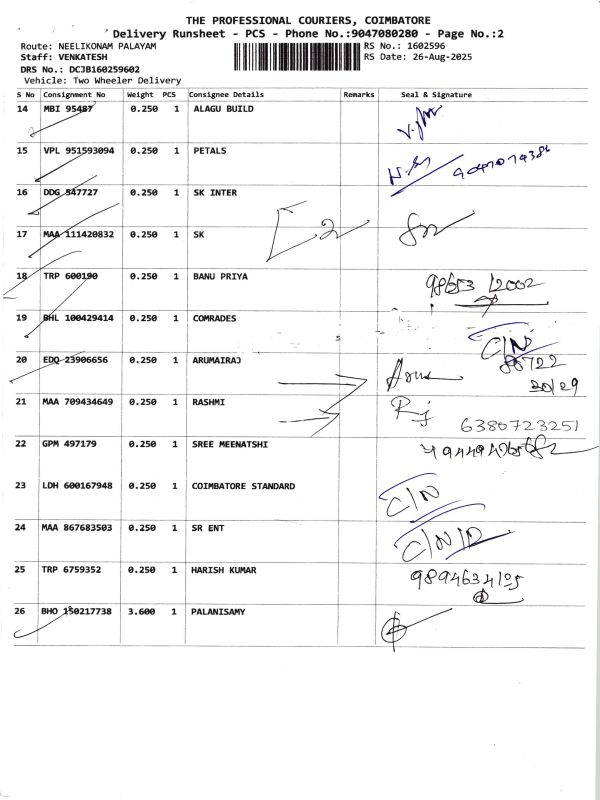 THE PROFESSIONAL COURIERS, COIMBATORE
Delivery Runsheet - PCS - Phone No.:9047080280 - Page No.:2
Route: NEELIKONAM PALAYAM RS No.: 1602596
Staff: VENKATESH RS Date: 26-Aug-2025
DRS No.: DCJB160259602
Vehicle: Two Wheeler Delivery
S No Consignment No Weight PCS Consignee Details Remarks Seal & Signature
14 MBI 95487 0.250 1 ALAGU BUILD
15 VPL 951593094 0.250 1 PETALS
16 DDG 547727 0.250 1 SK INTER
17 MAA 111420832 0.250 1 SK
18 TRP 600190 0.250 1 BANU PRIYA
19 BHL 100429414 0.250 1 COMRADES
C/N
20 EDQ 23906656 0.250 1 ARUMAIRAJ
21 MAA 709434649 0.250 1 RASHMI
6380723251
22 GPM 497179 0.250 1 SREE MEENATSHI
23 LDH 600167948 0.250 1 COIMBATORE STANDARD
C/N
24 MAA 867683503 0.250 1 SR ENT
25 TRP 6759352 0.250 1 HARISH KUMAR
9894634105
26 BHO 150217738 3.600 1 PALANISAMY